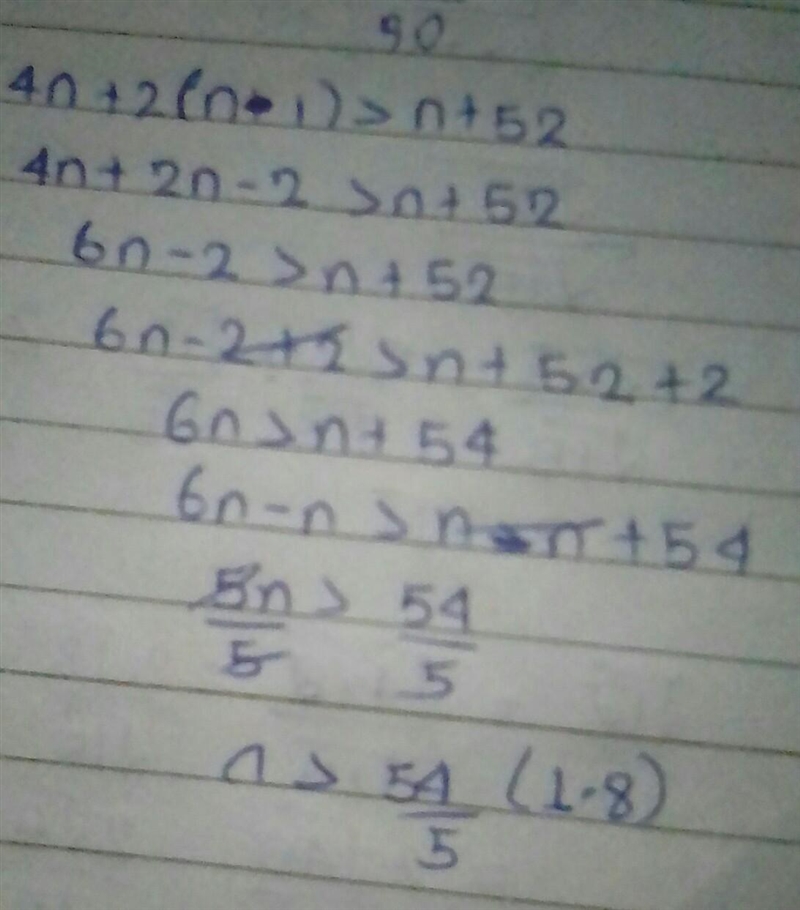 90
4n+2(n-1)>n+52
4n+2n-2>n+52
6n-2>n+52
6n-2+2>n+52+2
6n>n+54
6n-n>n-n+54
5n/5>54/5
n>54/5 (1.8)